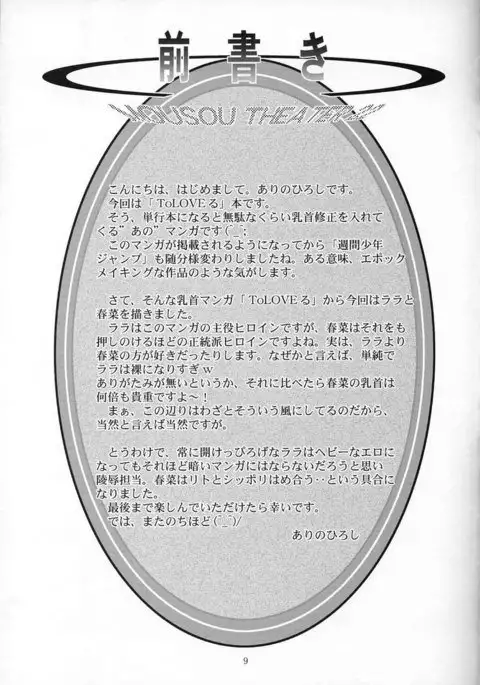 前書き
MOUSOU THEATER
こんにちは、はじめまして。ありのひろしです。
今回は「ToLOVEる」本です。
そう、単行本になると無駄なくらい乳首修正を入れて
くる"あの"マンガです(^_^;
このマンガが掲載されるようになってから「週間少年
ジャンプ」も随分様変わりしましたね。ある意味、エポック
メイキングな作品のような気がします。
さて、そんな乳首マンガ「ToLOVEる」から今回はララと
春菜を描きました。
ララはこのマンガの主役ヒロインですが、春菜はそれをも
押しのけるほどの正統派ヒロインですよね。実は、ララより
春菜の方が好きだったりします。なぜかと言えば、単純で
ララは裸になりすぎｗ
ありがたみが無いというか、それに比べたら春菜の乳首は
何倍も貴重ですよ～！
まぁ、この辺りはわざとそういう風にしてるのだから、
当然と言えば当然ですが。
とうわけで、常に開けっぴろげなララはヘビーなエロに
なってもそれほど暗いマンガにはならないだろうと思い
陵辱担当。春菜はリトとシッポリはめ合う‥という具合に
なりました。
最後まで楽しんでいただけたら幸いです。
では、またのちほど(^_^)/
ありのひろし
9